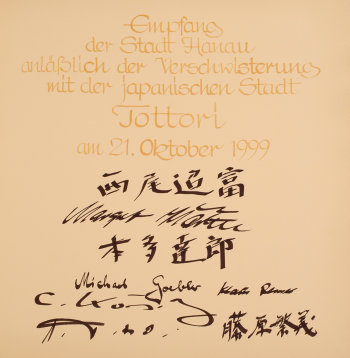 Empfang
der Stadt Hanau
anläßlich der Verschwisterung
mit der japanischen Stadt
Tottori
am 21. Oktober 1999
西尾迢富
Margret Härtel
本多達郎
Michael Goebler
藤原繁義